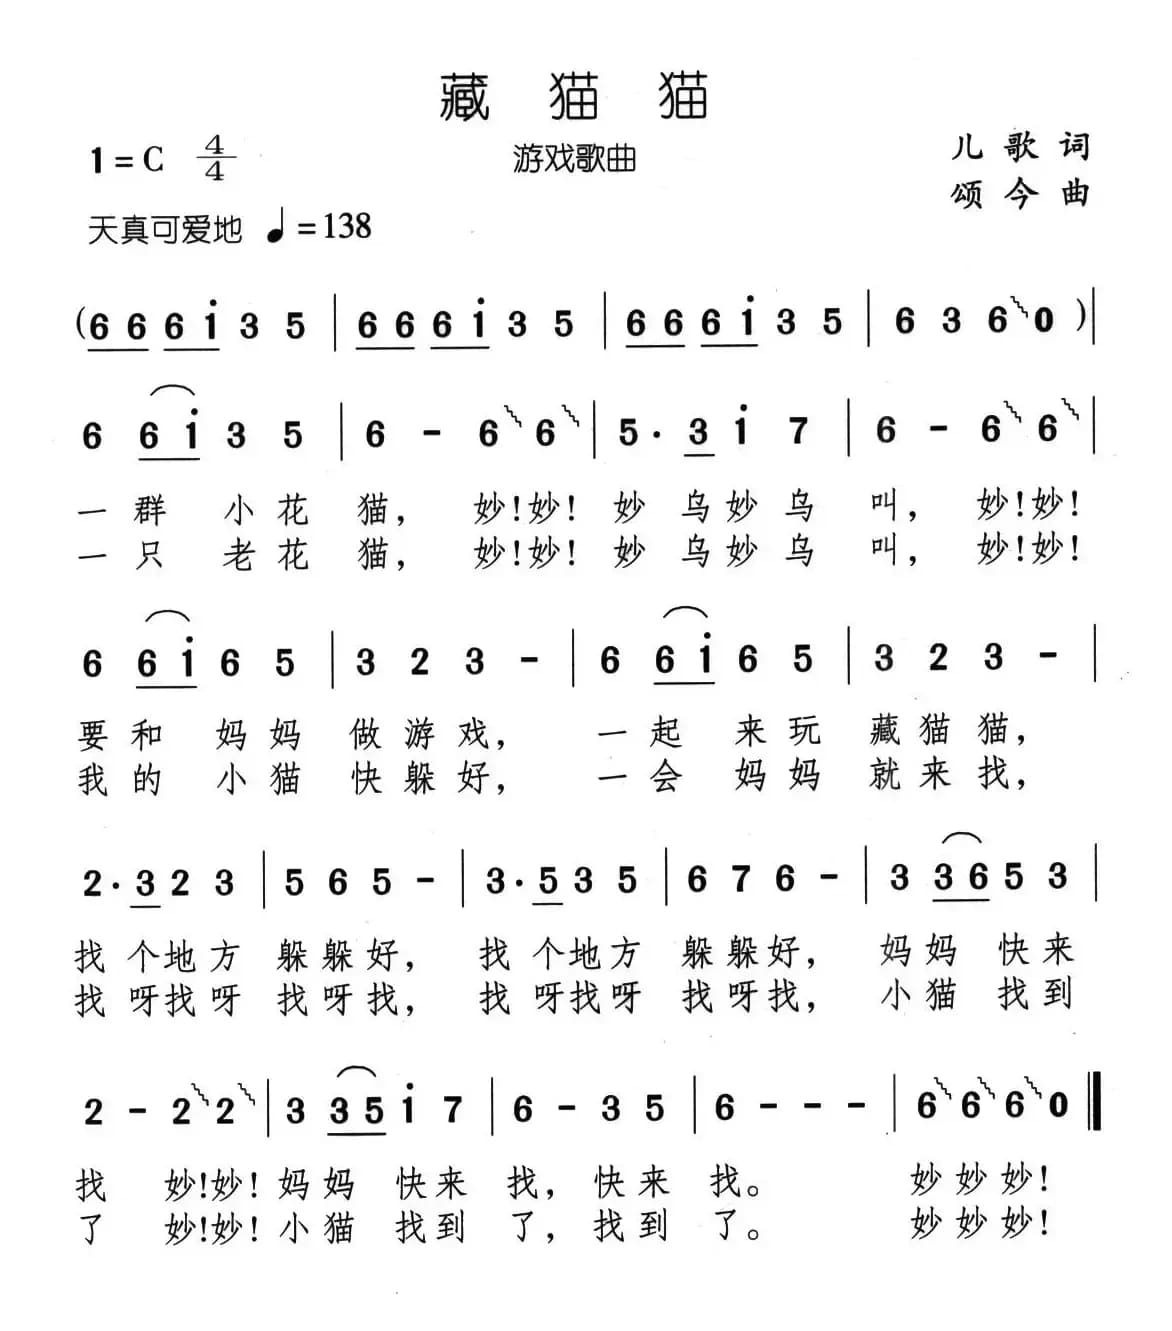 藏 猫 猫
游戏歌曲
1 = C 4/4
儿 歌 词
颂 今 曲
天真可爱地 ♩ = 138
( 6 6 6 i 3 5 | 6 6 6 i 3 5 | 6 6 6 i 3 5 | 6 3 6 0 ) |
6 6 i 3 5 | 6 - 6 6 | 5 · 3 i 7 | 6 - 6 6 |
一 群 小 花 猫, 妙!妙! 妙 乌 妙 乌 叫, 妙!妙!
一 只 老 花 猫, 妙!妙! 妙 乌 妙 乌 叫, 妙!妙!
6 6 i 6 5 | 3 2 3 - | 6 6 i 6 5 | 3 2 3 - |
要 和 妈 妈 做 游 戏, 一 起 来 玩 藏 猫 猫,
我 的 小 猫 快 躲 好, 一 会 妈 妈 就 来 找,
2 · 3 2 3 | 5 6 5 - | 3 · 5 3 5 | 6 7 6 - | 3 3 6 5 3 |
找 个 地 方 躲 躲 好, 找 个 地 方 躲 躲 好, 妈 妈 快 来
找 呀 找 呀 找 呀 找, 找 呀 找 呀 找 呀 找, 小 猫 找 到
2 - 2 2 | 3 3 5 i 7 | 6 - 3 5 | 6 - - - | 6 6 6 0 ‖
找 妙!妙! 妈 妈 快 来 找, 快 来 找。 妙 妙 妙!
了 妙!妙! 小 猫 找 到 了, 找 到 了。 妙 妙 妙!